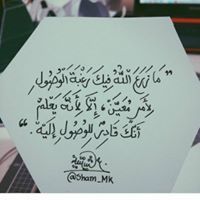 "مَا زَرَعَ اللّٰهُ فِيكَ رَغْبَةَ الْوُصُولِ
لِأَمْرٍ مُعَيَّنٍ، إِلَّا لِأَنَّهُ يَعْلَمُ
أَنَّكَ قَادِرٌ لِلْوُصُولِ إِلَيْهِ."
@Sham_Mk